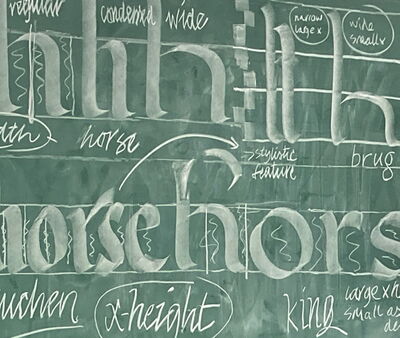 regular condensed wide narrow large x wide small x
h h h h h
horse → stylistic feature brug
horse hors
x-height king large x h small as